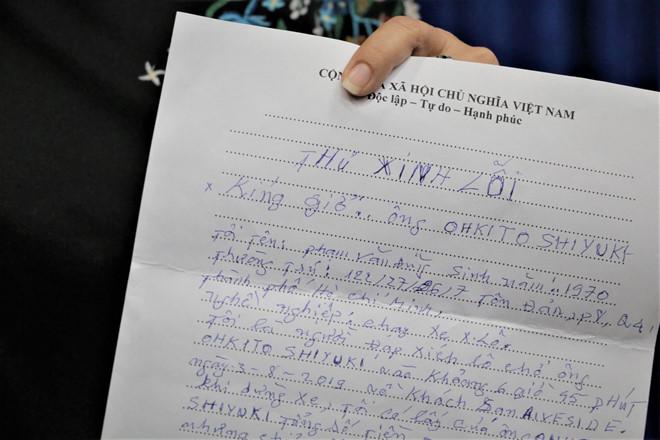 CỘNG HÒA XÃ HỘI CHỦ NGHĨA VIỆT NAM
Độc lập – Tự do – Hạnh phúc
THƯ XINH LỖI
x Kíng giở: ông OHKITO SHIYUKI
Tôi Tên: phạm văn Dũng Sinh năm: 1970
Thường Trú: 122/27/ Tôn Đản, p8, Q4,
Thành phố Hồ Chí Minh,
Nghề nghiệp: chạy xe xích lô.
Tôi là người Đạp xích lô chở ông
OHKITO SHIYUKI vào khoảng 6 giờ 55 phút
ngày 3-8-2019 với khách
khi dừng xe, Tôi có lấy của ông
SHIYUKI Tổng số Tiền
nhưng